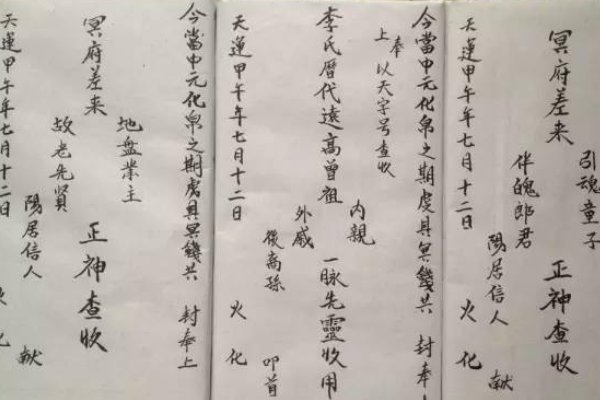 引魂童子
冥府差来 正神查收
伴魄郎君
陽居信人 献
天運甲午年七月十二日 火化
今當中元化帛之期虔具冥錢共 封奉上
奉上以天字号查收
内親
李氏歷代遠高曾祖 一脉先靈收用
外戚
後裔孫 叩首
天運甲午年七月十二日 火化
今當中元化帛之期虔具冥錢共 封奉上
地盤業主
冥府差来 正神查收
故老先賢
陽居信人 献
天運甲午年七月十二日 火化